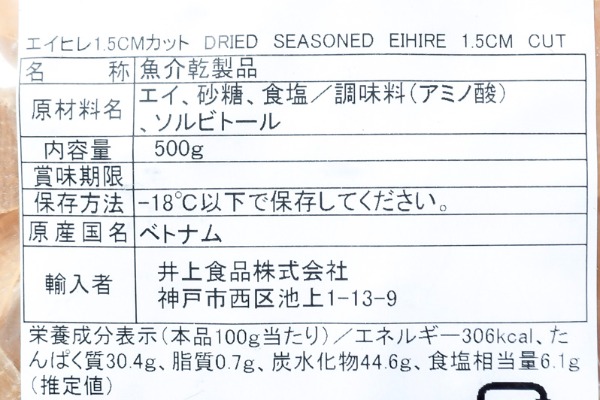 エイヒレ1.5CMカット DRIED SEASONED EIHIRE 1.5CM CUT
名称 魚介乾製品
原材料名 エイ、砂糖、食塩／調味料(アミノ酸)
、ソルビトール
内容量 500g
賞味期限
保存方法 -18℃以下で保存してください。
原産国名 ベトナム
輸入者 井上食品株式会社
神戸市西区池上1-13-9
栄養成分表示(本品100g当たり)／エネルギー306kcal、た
んぱく質30.4g、脂質0.7g、炭水化物44.6g、食塩相当量6.1g
(推定値)